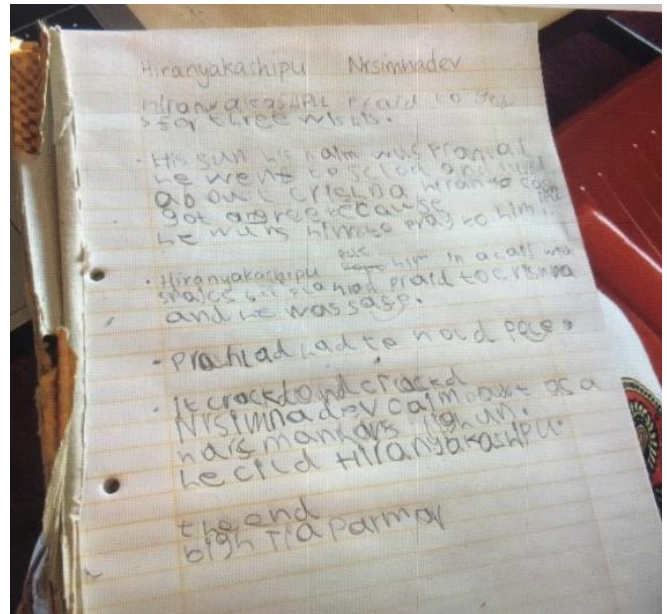 Hiranyakashipu Nrsimhadev
Hiranyakashipu praid to
for three wishis.
- His sun his naim was Pranlal
he went to sclod and
about crishna hiran
got agree ecause
he wans him to pray to him.
put
- Hiranyakashipu him in a caif with
snaics but Prahlad praid to crishna
and he was safe.
- Prahlad had to hold
- It crackd and cracked
Nrsimhadev caim out as a
hars man hars
he cild Hiranyakashipu.
the end
bigh Tia Parmar